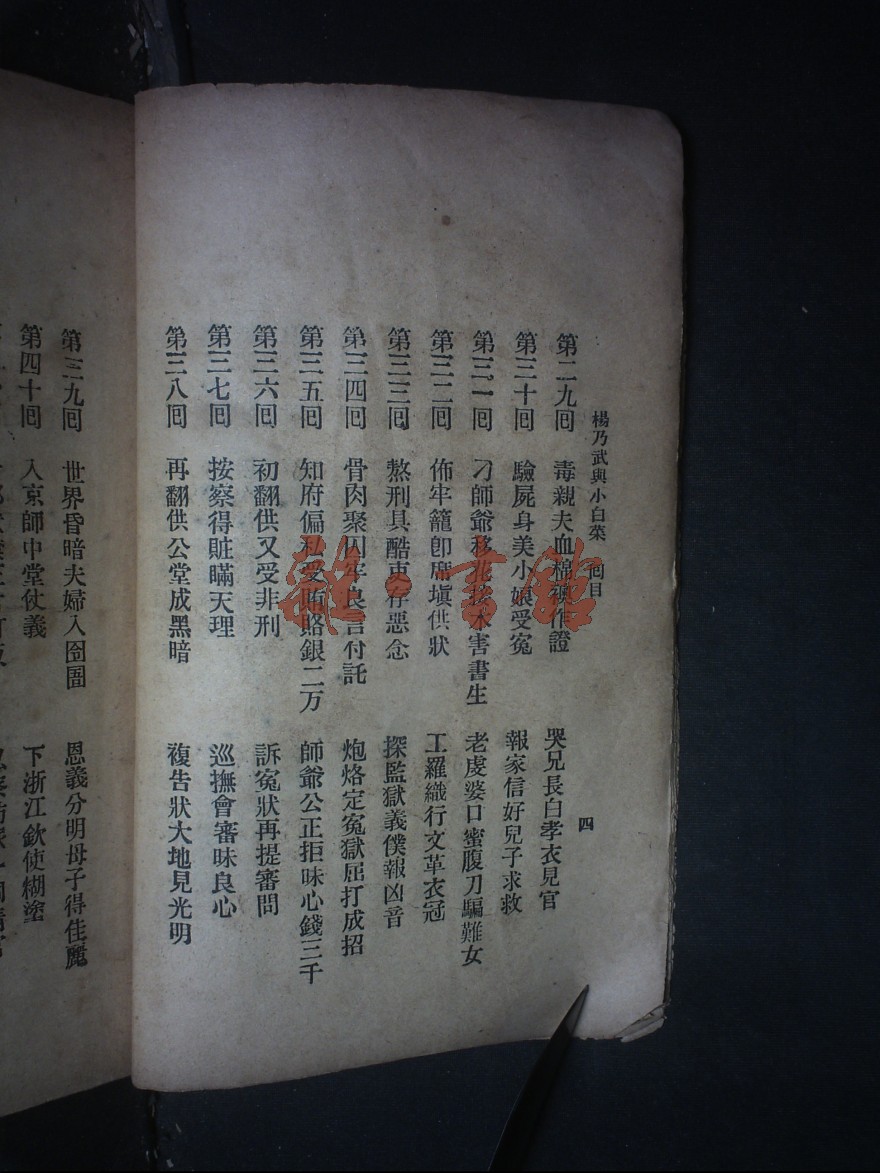 楊乃武與小白菜 回目 四
第二九回 毒親夫血棉襖作證 哭兄長白孝衣見官
第三十回 驗屍身美小娘受冤 報家信好兒子求救
第三一回 刁師爺移花接木害書生 老虔婆口蜜腹刀騙難女
第三二回 佈牢籠卽席塡供狀 工羅織行文革衣冠
第三三回 熬刑具酷吏存惡念 探監獄義僕報凶音
第三四回 骨肉聚囚牢良言付託 炮烙定冤獄屈打成招
第三五回 知府偏私受賄賂銀二万 師爺公正拒昧心錢三千
第三六回 初翻供又受非刑 訴冤狀再提審問
第三七回 按察得賍瞞天理 巡撫會審昧良心
第三八回 再翻供公堂成黑暗 複告狀大地見光明
第三九回 世界昏暗夫婦入囹圄 恩義分明母子得佳麗
第四十回 入京師中堂仗義 下浙江欽使糊塗
雜·書館